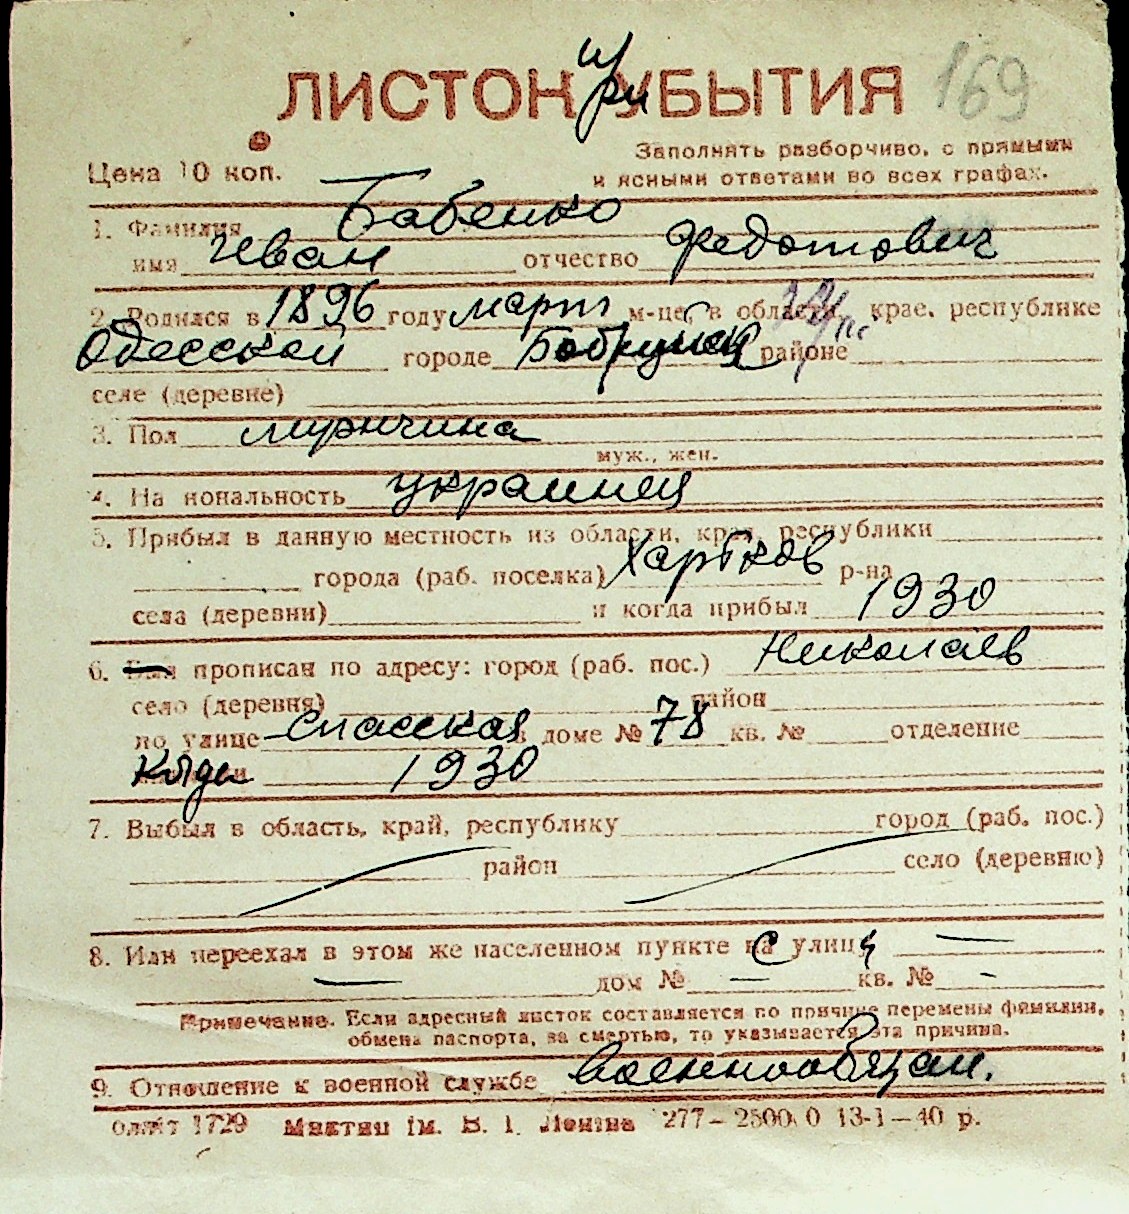 ЛИСТОК УБЫТИЯ
при
169
Цена 10 коп.
Заполнять разборчиво, с прямыми
и ясными ответами во всех графах.
1. Фамилия Бабенко
имя Иван отчество Федотович
2. Родился в 1896 году март м-це, в области, крае, республике
Одесской городе Бобринец районе
селе (деревне)
3. Пол мужчина
муж., жен.
4. На иональность украинец
5. Прибыл в данную местность из области, края, республики
города (раб. поселка) Харьков р-на
села (деревни) и когда прибыл 1930
6. Был прописан по адресу: город (раб. пос.) Николаев
село (деревня) район
по улице Спасская в доме № 78 кв. № отделение
когда 1930
7. Выбыл в область, край, республику город (раб. пос.)
район село (деревню)
8. Или переехал в этом же населенном пункте с улицы —
— дом № — кв. № -
Примечание. Если адресный листок составляется по причине перемены фамилии,
обмена паспорта, за смертью, то указывается эта причина.
9. Отношение к военной службе военнообязан.
1729 ім. В. І. Леніна 277—2500.0 13-1—40 р.